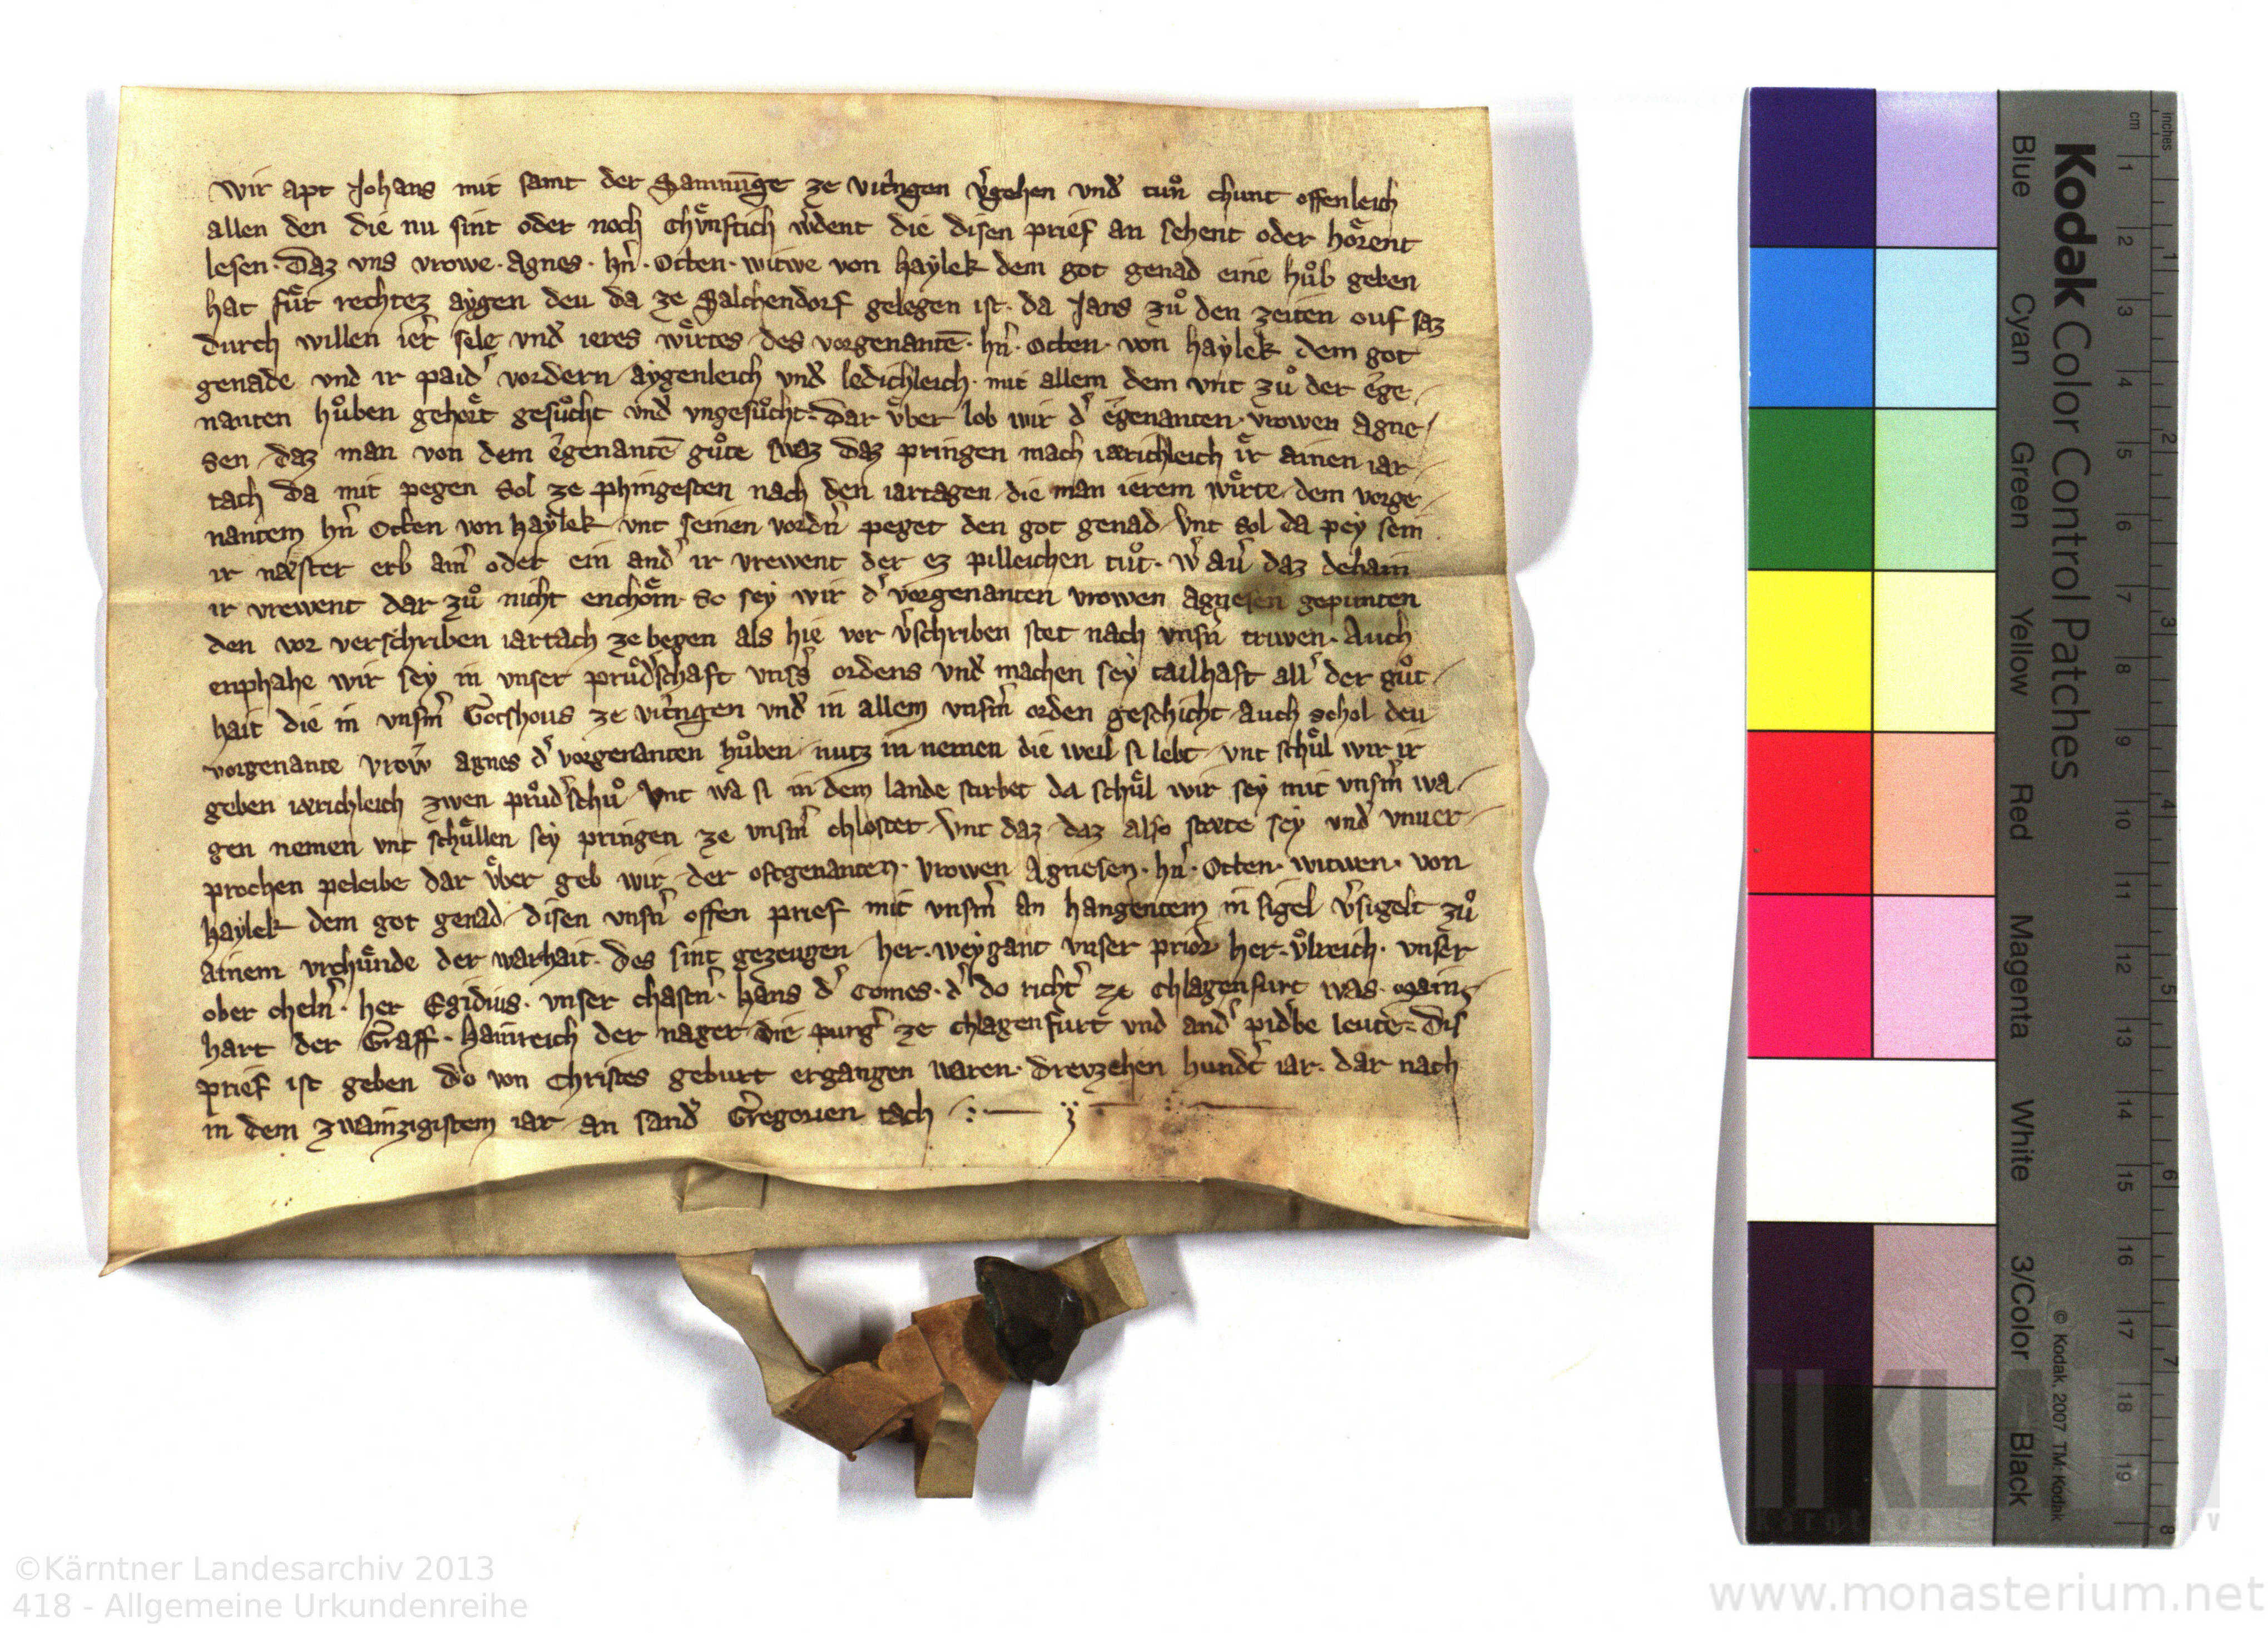 Wir apt Johans mit samt der Samnūge ze vit̾ngen v̾gehen vnd̾ tuͦn chunt offenleich
allen den die nu sint oder noch chvͤnftich w̾dent die disen prief an sehent oder hoͤrent
lesen · Daz vns vrowe · Agnes · hn̾ · Otten · witwe von haylek dem got genad eine huͦb geben
hat fuͤr rechtez aygen deu da ze Salchendorf gelegen ist · da Jans zuͦ den zeiten ouf saz
durch willen ier̾ sele vnd̾ ieres wuͤrtes des vorgenantē · hn̾ · Otten · von haylek dem got
genade vnd ir paid̾ vordern aygenleich vnd̾ ledichleich · mit allem dem vnt zuͦ der ege
nanten huͦben gehoͤrt gesuͦcht vnd̾ vngesuͦcht · Dar vͤber lob wir d̾ egenanten · vrowen Agne
sen daz man von dem egenantē guͦte swaz daz pringen mach iærichleich ir ainen iar
tach da mit pegen sol ze phingesten nach den iartagen die man ierem wuͤrte dem vorge
nantem hn̾ Otten von haylek vnt seinen vordn̾ peget den got genad vnt sol da pey sein
ir næster erb ain̾ oder ein and̾ ir vrewent der ez pilleichen tuͦt · w̾ au̾ daz dehain
ir vrewent dar zuͦ nicht enchoͤm · so sey wir d̾ vorgenanten vrowen agnesen gepunten
den vor verschriben iartach ze begen als hie vor v̾schriben stet nach vnsn̾ triwen · Auch
enphahe wir sey in vnser pruͦd̾schaft vnss̾ ordens vnd̾ machen sey tailhaft all̾ der guͦt
hait die in vnsm̾ Gotshous ze vit̾ngen vnd̾ in allem vnsm̾ orden geschicht · Auch schol deu
vorgenante vrow agnes d̾ vorgenanten huͦben nutz in nemen die weil si lebt vnt schuͤl wir ir
geben iærichleich zwen pruͦd̾schuͦ · Vnt wa si in dem lande stirbet da schuͤl wir sey mit vnsm̾ wa
gen nemen vnt schuͤllen sey pringen ze vnsm̾ chloster · Vnt daz daz also stæte sey vnd̾ vnuer
prochen peleibe dar vͤber geb wir der oftgenanten · vrowen Agnesen · hn̾ · Otten · witwen · von
haylek dem got genad disen vnsn̾ offen prief mit vnsm̾ an hangentem insigel v̾sigelt zuͦ
ainem vrchuͤnde der warhait · Des sint gezeugen her · weygant vnser prior her · vͦlreich · vnser
ober cheln̾ · her Egidius · vnser chastn̾ · hans d̾ Comes · d̾ do richt̾ ze chlagenfurt was · Main
hart der Graff · hainreich der nager die purg̾ ze chlagenfurt vnd and̾ pid̾be leute · Dis
prief ist geben do von Christes geburt ergangen waren · Dreuzehen hund̾t iar · dar nach
in dem zwainzigistem iar an sand̾ Gregorien tach
Kodak Color Control Patches
Blue Cyan Green Yellow Red Magenta White 3/Color Black
© Kodak, 2007 TM: Kodak
cm 1 2 3 4 5 6 7 8 9 10 11 12 13 14 15 16 17 18 19
inches 1 2 3 4 5 6 7 8
©Kärntner Landesarchiv 2013
418 - Allgemeine Urkundenreihe
www.monasterium.net